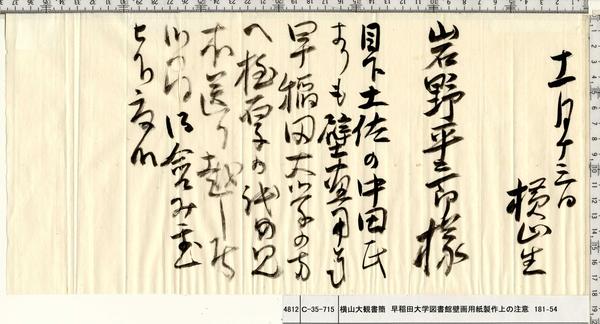 十一月廿三日
横山生
岩野平三郎様
目下土佐の中田氏
よりも壁画用紙
早稲田大学の方
へ極厚の代物見
本送り越し居
候
御含み置
被下度候
4812 C-35-715 横山大観書簡 早稲田大学図書館壁画用紙製作上の注意 181-54